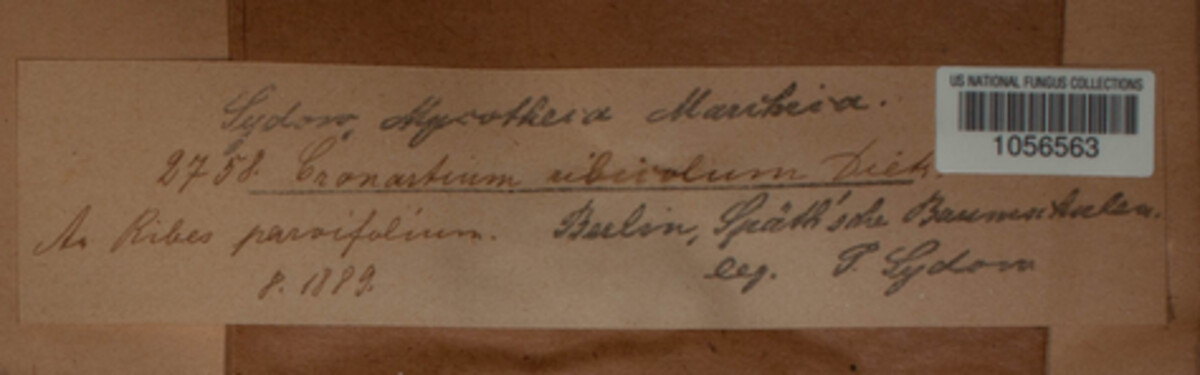 Sydow, Mycotheca Marchica.
2758. Cronartium ribicolum Dietr.
An Ribes parvifolium. Berlin, Späth'sche Baumschulen.
8. 1889. leg. P. Sydow
US NATIONAL FUNGUS COLLECTIONS
1056563